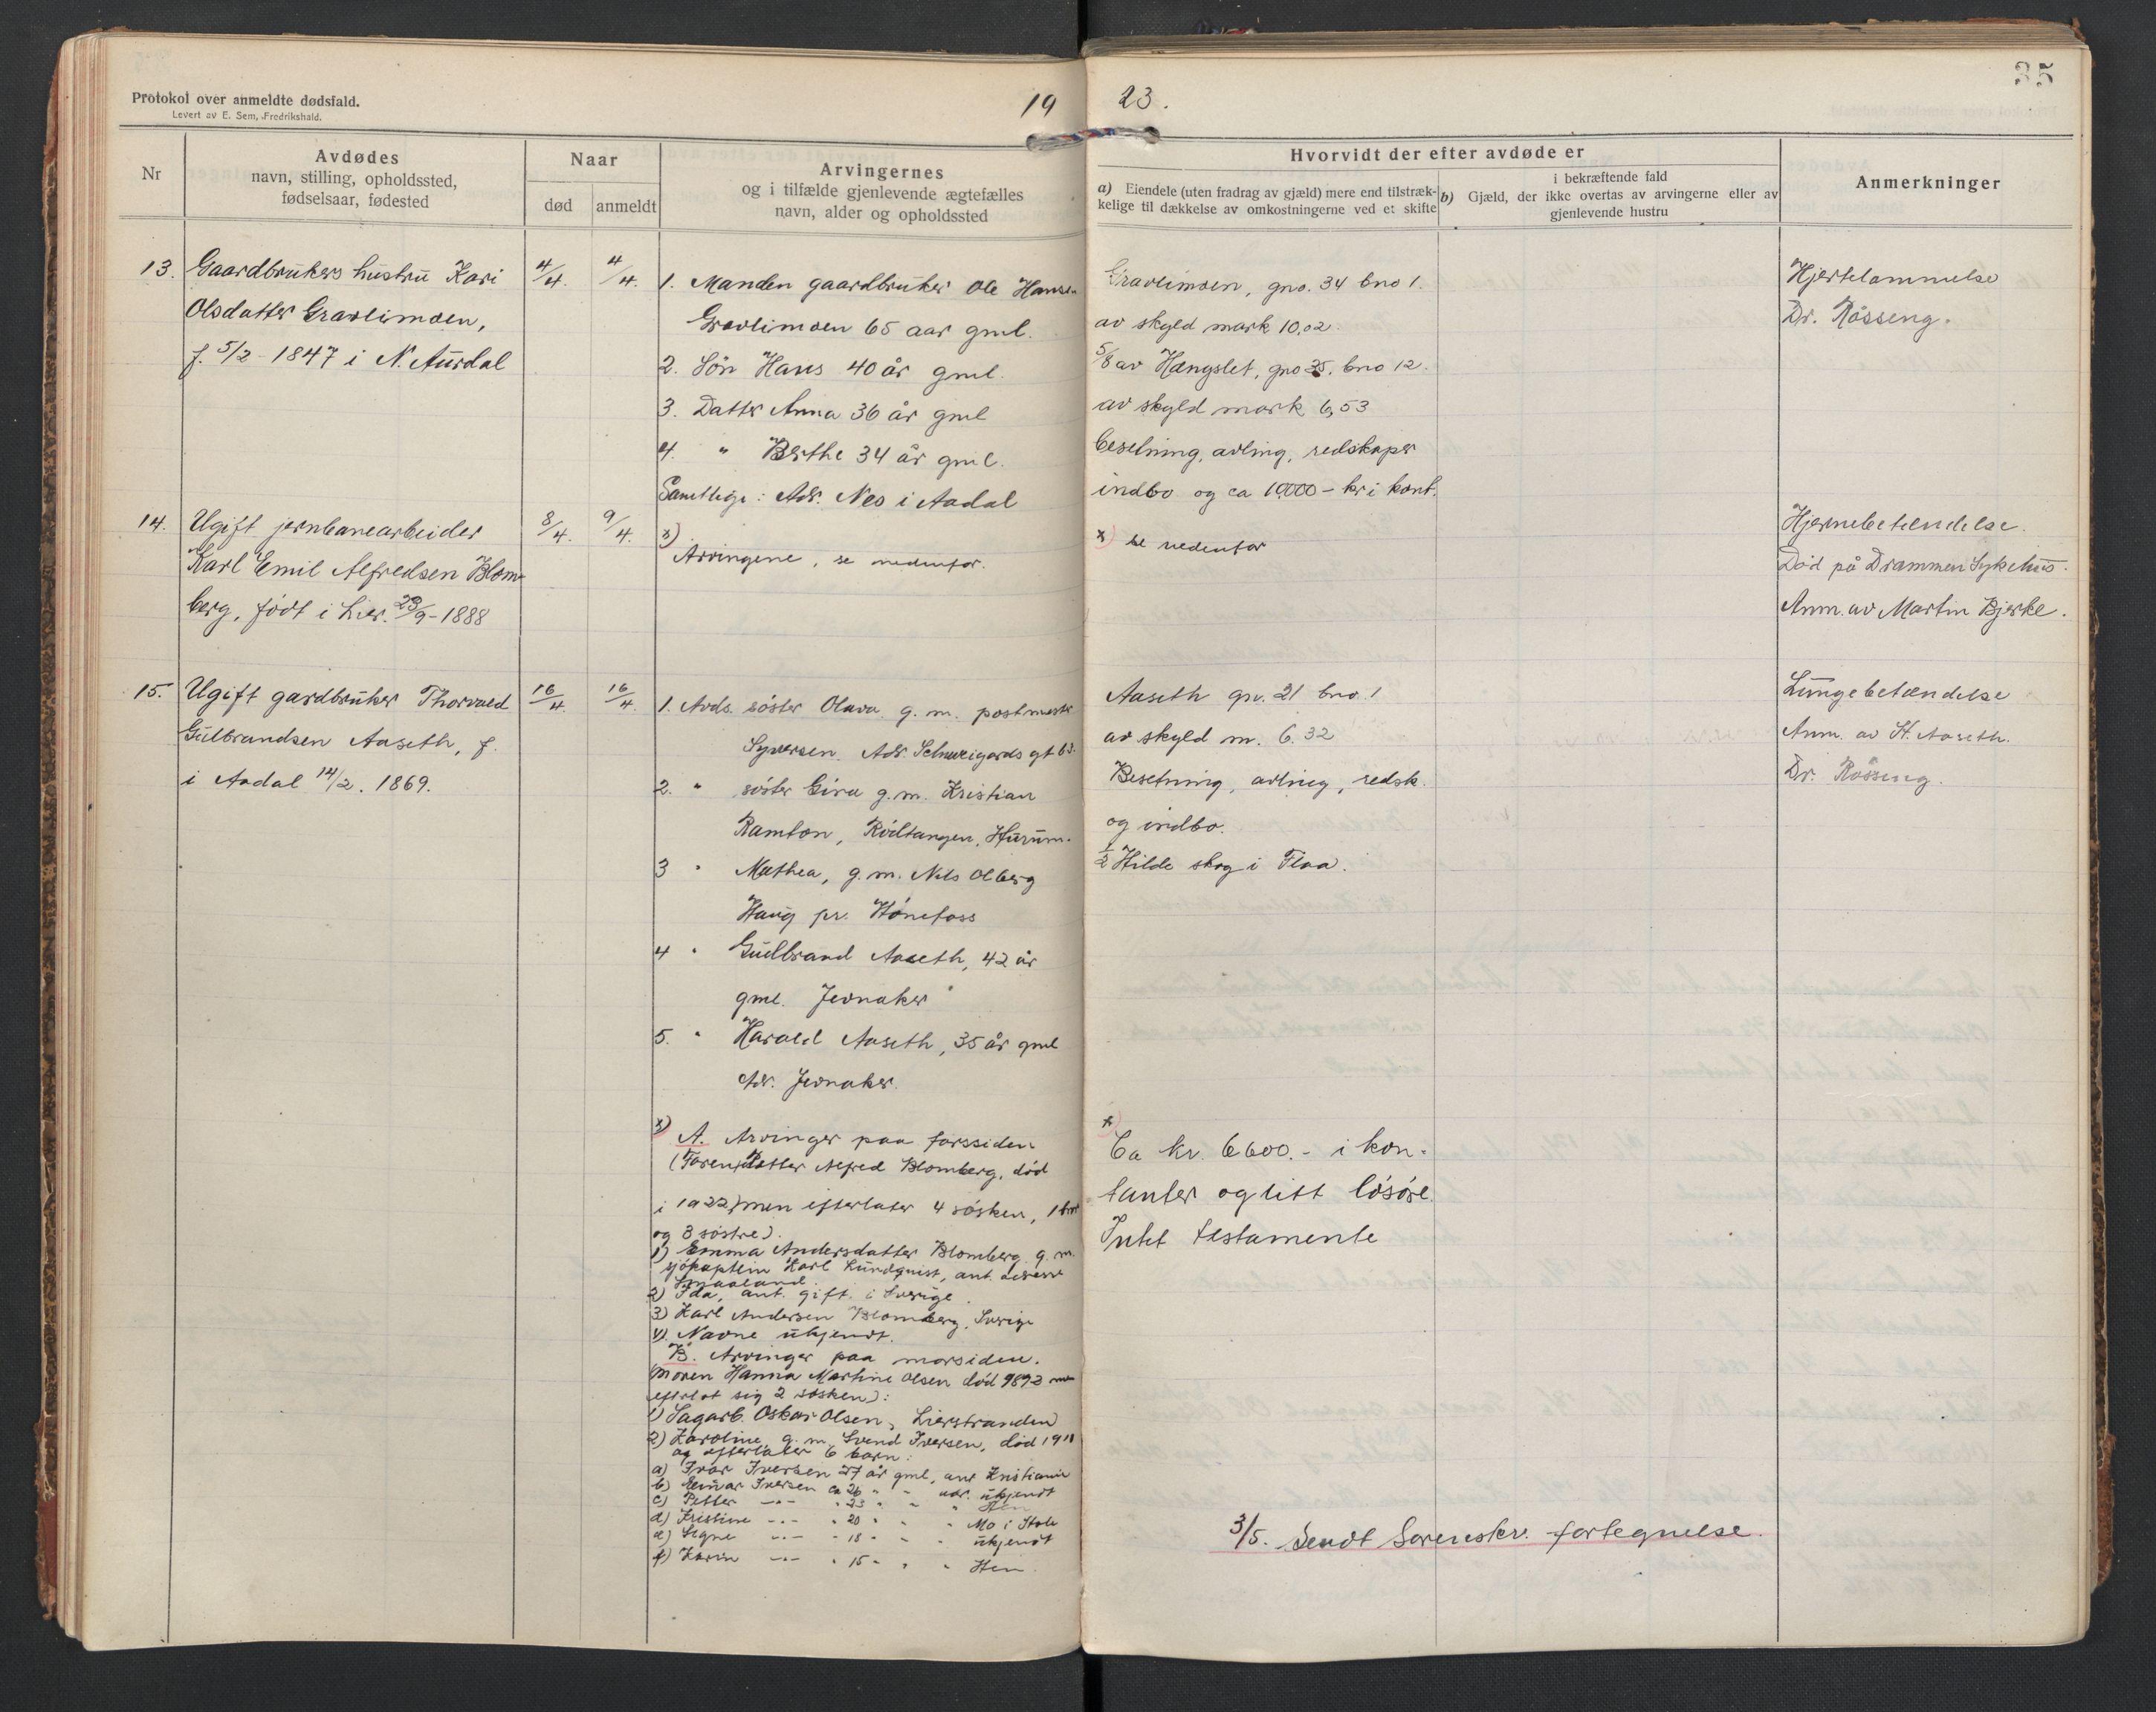 Protokol over anmeldte dødsfald.
Levert av E. Sem, Fredrikshald.
19
23.
35
Nr
Avdødes
navn, stilling, opholdssted,
fødselsaar, fødested
Naar
død
anmeldt
Arvingernes
og i tilfælde gjenlevende ægtefælles
navn, alder og opholdssted
Hvorvidt der efter avdøde er
a) Eiendele (uten fradrag av gjæld) mere end tilstræk-
kelige til dækkelse av omkostningerne ved et skifte
i bekræftende fald
b) Gjæld, der ikke overtas av arvingerne eller av
gjenlevende hustru
Anmerkninger
13.
Gaardbrukers hustru Kari
Olsdatter Gravlimoen,
f. 5/2 - 1847 i N. Aurdal
4/4.
4/4.
1. Manden gaardbruker Ole Hansen
Gravlimoen 65 aar gml.
2. Sön Hans 40 år gml.
3. Datter Anna 36 år gml
4. " Berthe 34 år gml.
Samtlige: Adr. Nes i Aadal
Gravlimoen, gno. 34 bno 1.
av skyld mark 10,02.
5/8 av Hængslet, gno 25. bno 12.
av skyld mark 6,53
besetning, avling, redskaper
indbo og ca 10.000 - kr i kont.
Hjertelammelse
Dr. Røsseng.
14.
Ugift jernbanearbeider
Karl Emil Alfredsen Blom-
berg, født i Lier. 23/9-1888
8/4.
9/4.
x)
Arvingene, se nedenfor.
x) se nedenfor
Hjernebetendelse.
Død på Drammen Sykehus.
Anm. av Martin Bjerke.
15.
Ugift gardbruker Thorvald
Gulbrandsen Aaseth, f.
i Aadal 14/2. 1869.
16/4.
16/4.
1. Avds. søster Olava g. m. postmestr
Syversen. Adr. Schweigaards gt 63.
2. " søster Gira g. m. Kristian
Ramton, Rødtangen, Hurum.
3 " Mathea, g. m. Nels Olberg
Haug pr. Hønefoss
4 " Gudbrand Aaseth, 42 år
gml. Jevnaker
5. " Harald Aaseth, 35 år gml
Adr. Jevnaker.
Aaseth gn. 21 bno. 1
av skyld m. 6.32
Besetning, avling, redsk.
og indbo.
1/2 Hilde skog i Flaa.
Lungebetændelse
Anm. av H. Aaseth.
Dr. Røsseng.
x) A. Arvinger paa farssiden
(Faren Petter Alfred Blomberg, død
i 1922, men efterlater 4 søsken, 1 bror
og 3 søstre).
1) Emma Andersdatter Blomberg g. m.
sjøkaptein Karl Lundquist, ant. adresse
Smaaland.
2) Ida, ant. gift i Sverige.
3) Karl Andersen Blomberg, Sverige
4). Navne ukjendt.
B. Arvinger paa morsiden.
(Moren Hanna Martine Olsen død 1892 men
efterlot sig 2 søsken):
1) Sagarb. Oskar Olsen, Lierstranden
2) Karoline g. m. Svend Iversen, død 1918
og efterlater 6 barn:
a) Ivar Iversen 27 år gml, ant Kristiania
b) Einar Iversen ca 26 " " adr. ukjendt
c) Petter -"- " 23 " " " Hen
d) Kristine -"- " 20 " " " Mo i
e) Signe -"- " 18 " " " ukjendt
f) Karin -"- " 15 " " " Hen.
x)
Ca kr. 6600.- i kon-
tanter og litt løsøre.
Intet testamente
3/5. Sendt Sorenskr. fortegnelse.